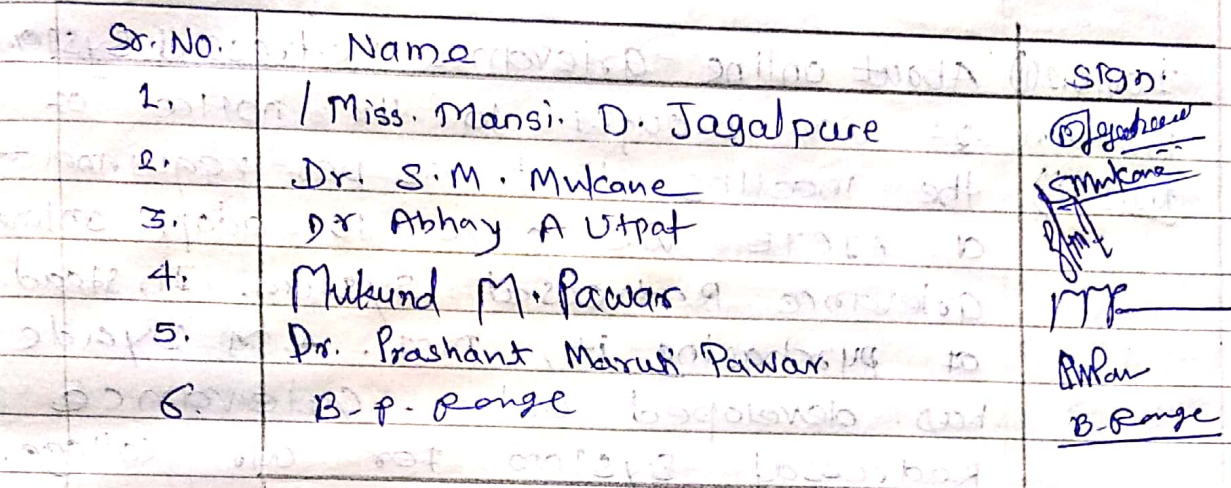 Sr. No. Name Sign.
1. Miss. Mansi. D. Jagalpure
2. Dr. S.M. Mukane SMukane
3. Dr Abhay A Utpat
4. Mukund M. Pawar
5. Dr. Prashant Maruti Pawar
6. B-P. Ronge B-Ronge